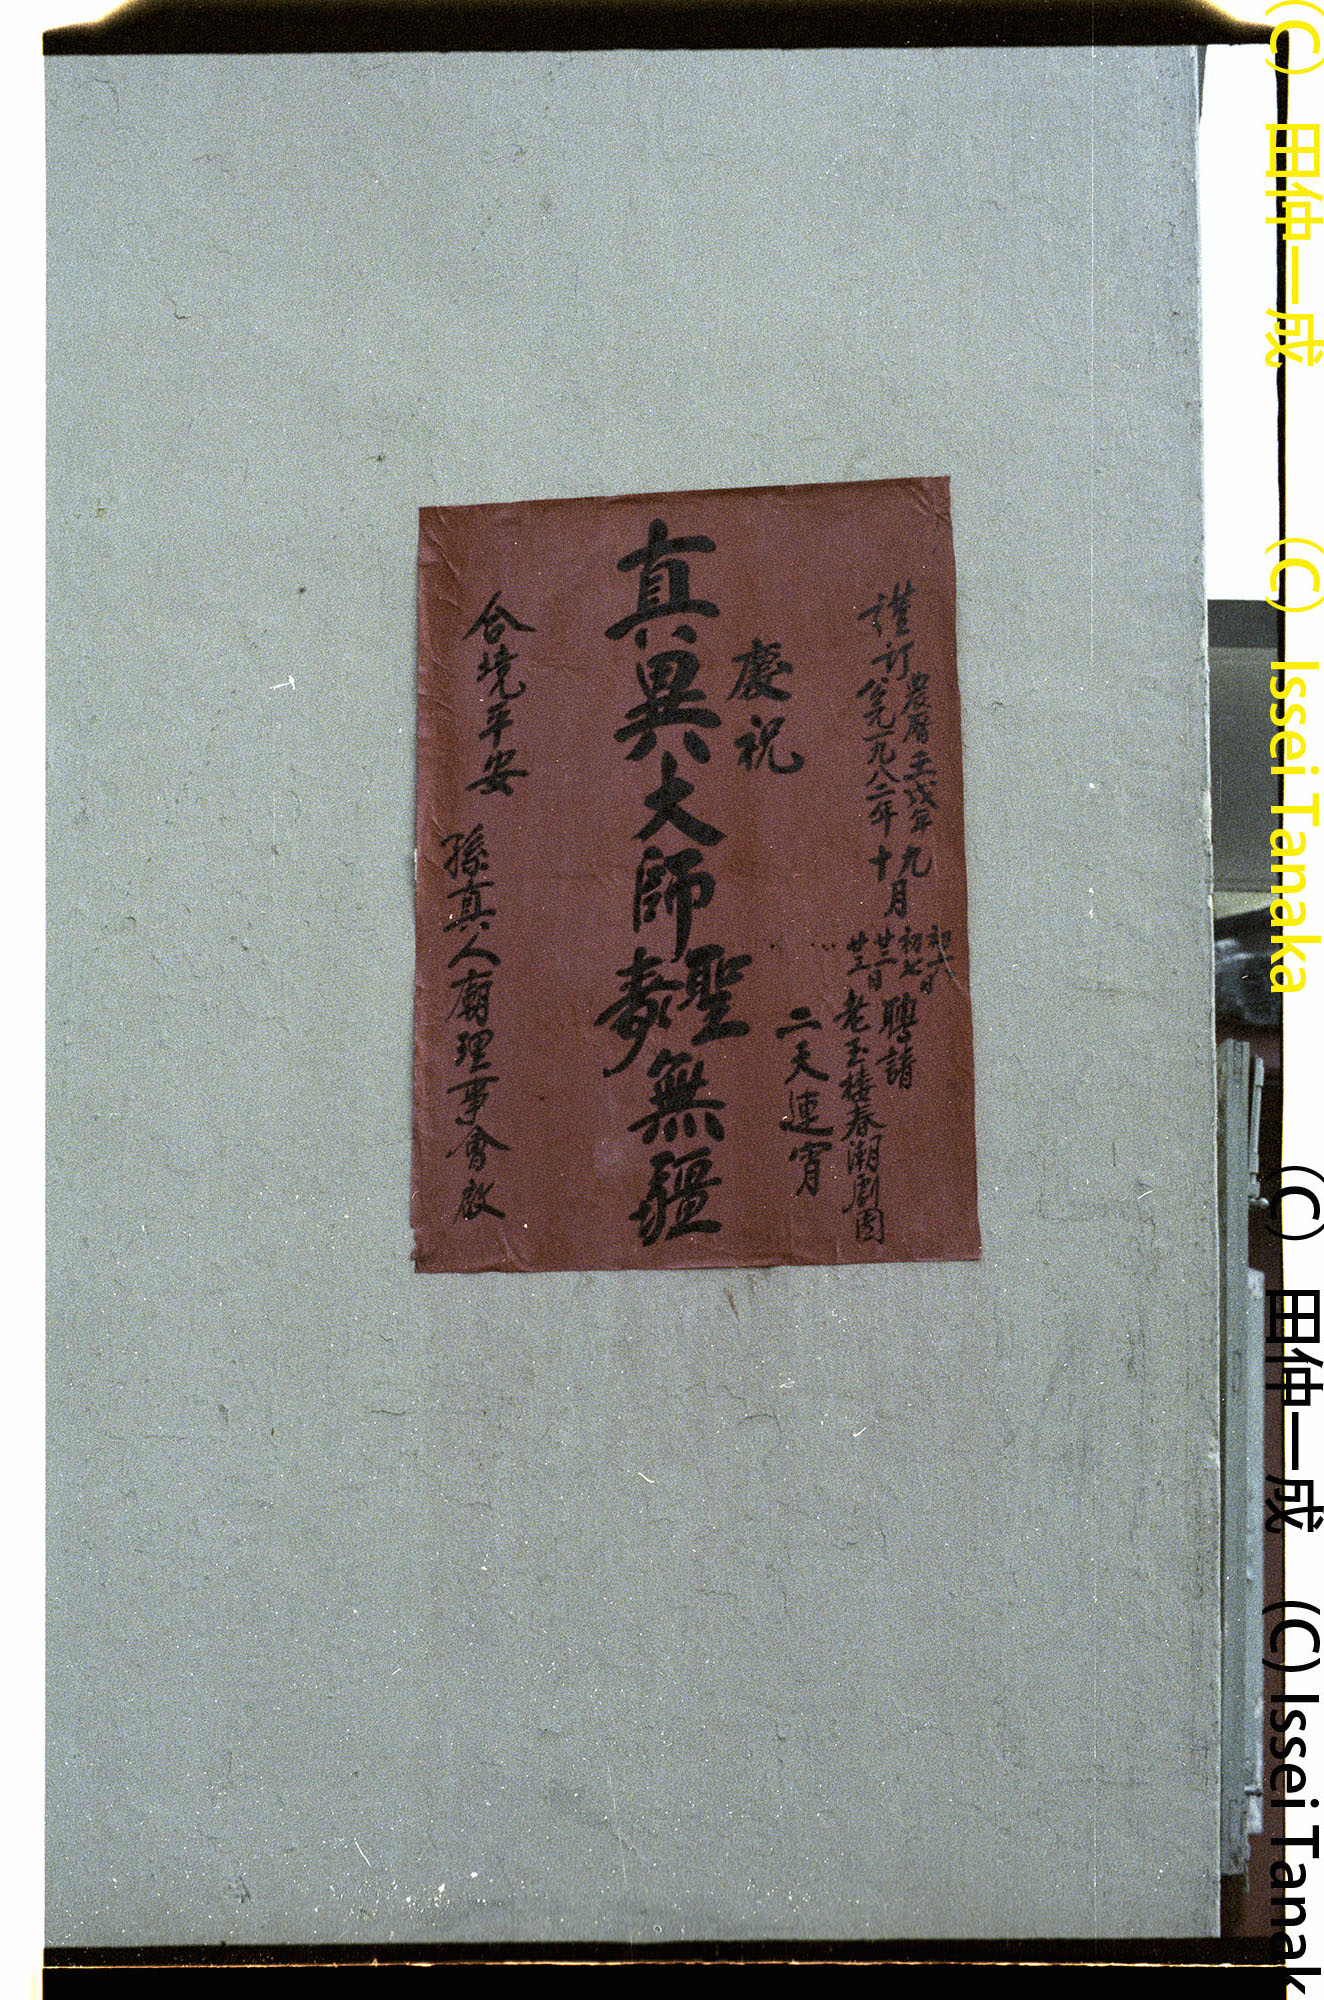 謹訂
農曆壬戌年九月初六日
初七日
公元一九八二年十月廿二日
廿三日
聘請
老玉楼春潮劇团
二天連宵
慶祝
真異大師聖壽無疆
合境平安
孫真人廟理事會啟
(C) 田仲一成 (C) Issei Tanaka
(C) 田仲一成 (C) Issei Tanak